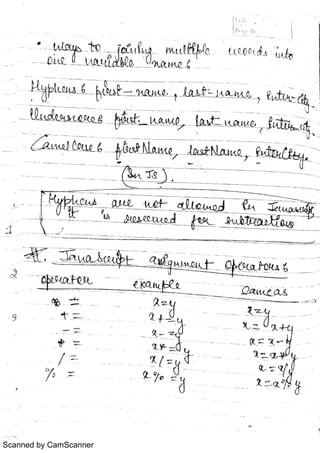 • ways to joining multiple words into
one variable names
Hyphens: first-name, last-name, Inter-City.
Underscores: first_name, last_name,
CamelCase: firstName, lastName, InterCity.
(In JS).
Hyphens are not allowed in Javascript
It is reserved for subtraction
#. JavaScript assignment operators
operator example same as
= x=y x=y
+= x+=y x=x+y
-= x-=y x=x-y
*= x*=y x=x*y
/= x/=y x=x/y
%= x%=y x=x%y
Scanned by CamScanner